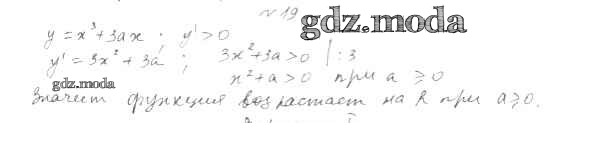 № 19
gdz.moda
y = x³ + 3ax ; y' > 0
y' = 3x² + 3a ; 3x² + 3a > 0 | : 3
x² + a > 0 при a ⩾ 0
gdz.moda
Значит функция возрастает на R при a ⩾ 0.